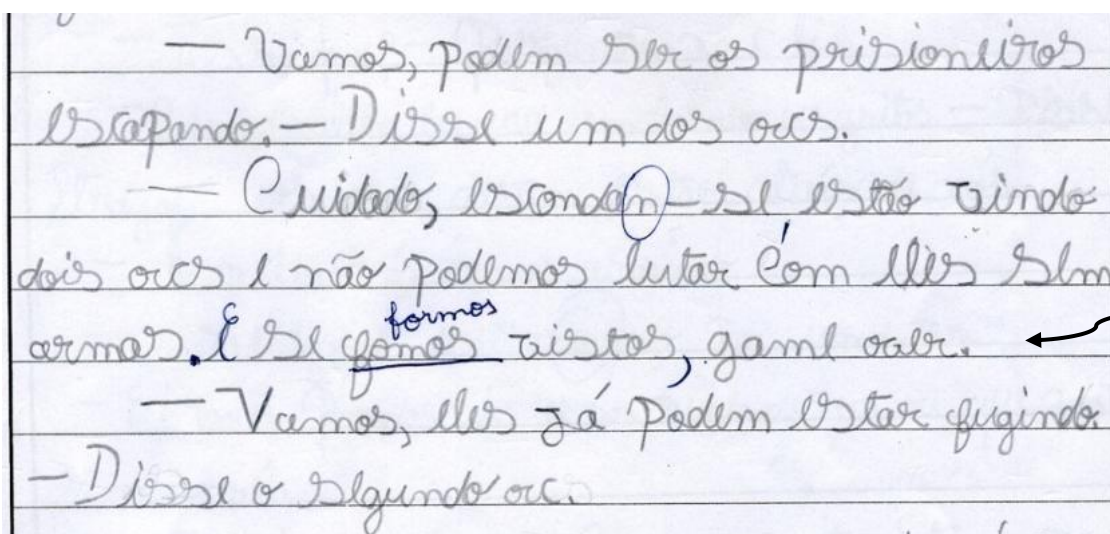 — Vamos, podem ser os prisioneiros
escapando. — Disse um dos orcs.
— Cuidado, escondan-se estão vindo
dois orcs e não podemos lutar com eles sem
formos
armas. E se fomos vistos, game over.
— Vamos, eles já podem estar fugindo
— Disse o segundo orc.